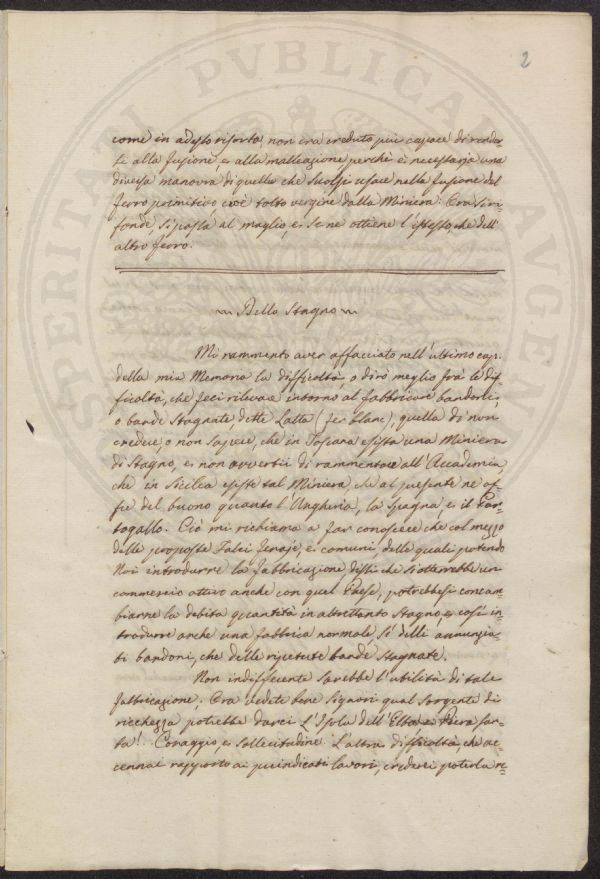 2
come in adesso risorta, non era creduto più capace di render=
si alla fusione, e alla malleazione perchè è necessaria una
diversa manovra di quella che suolsi usare nella fusione del
ferro primitivo, cioè tolto vergine dalla Miniera. Ora si ri=
fonde, si passa al maglio, e se ne ottiene l'istesso, che dell'
altro ferro.
Dello Stagno
Mi rammento aver affacciato nell'ultimo cap.
della mia Memoria la difficoltà, o dirò meglio frà le dif=
ficoltà, che feci rilevare intorno al fabbricare bandoni,
o bande Stagnate, dette Latta (fer blanc), quella di non
credere, o non sapere, che in Toscana esista una Miniera
di Stagno, e non avvertii di rammentare all'Accademia,
che in Sicilia esiste tal Miniera che al presente ne of=
fre del buono quanto l'Ungheria, la Spagna, e il Por=
togallo. Ciò mi richiama a far conoscere che col mezzo
delle proposte Falci e comuni, delle quali potendo
Noi introdurre la fabbricazione dissi che si otterrebbe un
commercio attivo anche con quel Paese, potrebbesi concam=
biarne la debita quantità in altrettanto Stagno, e così in=
trodurre anche una fabbrica normale sì delli annunzia=
ti bandoni, che delle ripetute bande Stagnate.
Non indifferente sarebbe l'utilità di tale
fabbricazione. Ora vedete bene Signori qual sorgente di
ricchezza potrebbe darci L'Isola dell'Elba e
Coraggio, e sollecitudine. L'altra difficoltà, che ac=
cennai rapporto ai preindicati lavori, crederei poterla re=